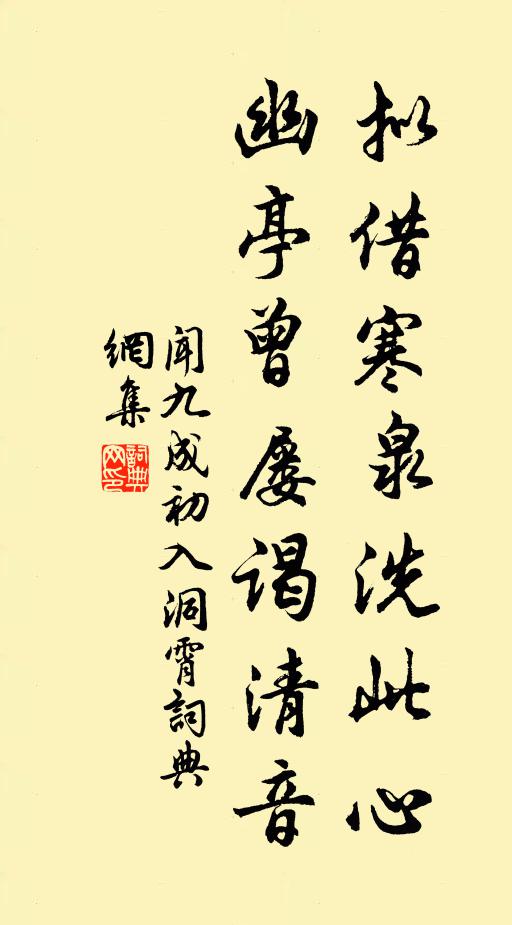 拟借寒泉洗此心
幽亭曾屡谒清音
闻九成初入洞霄詞典
網集
詞典
网印